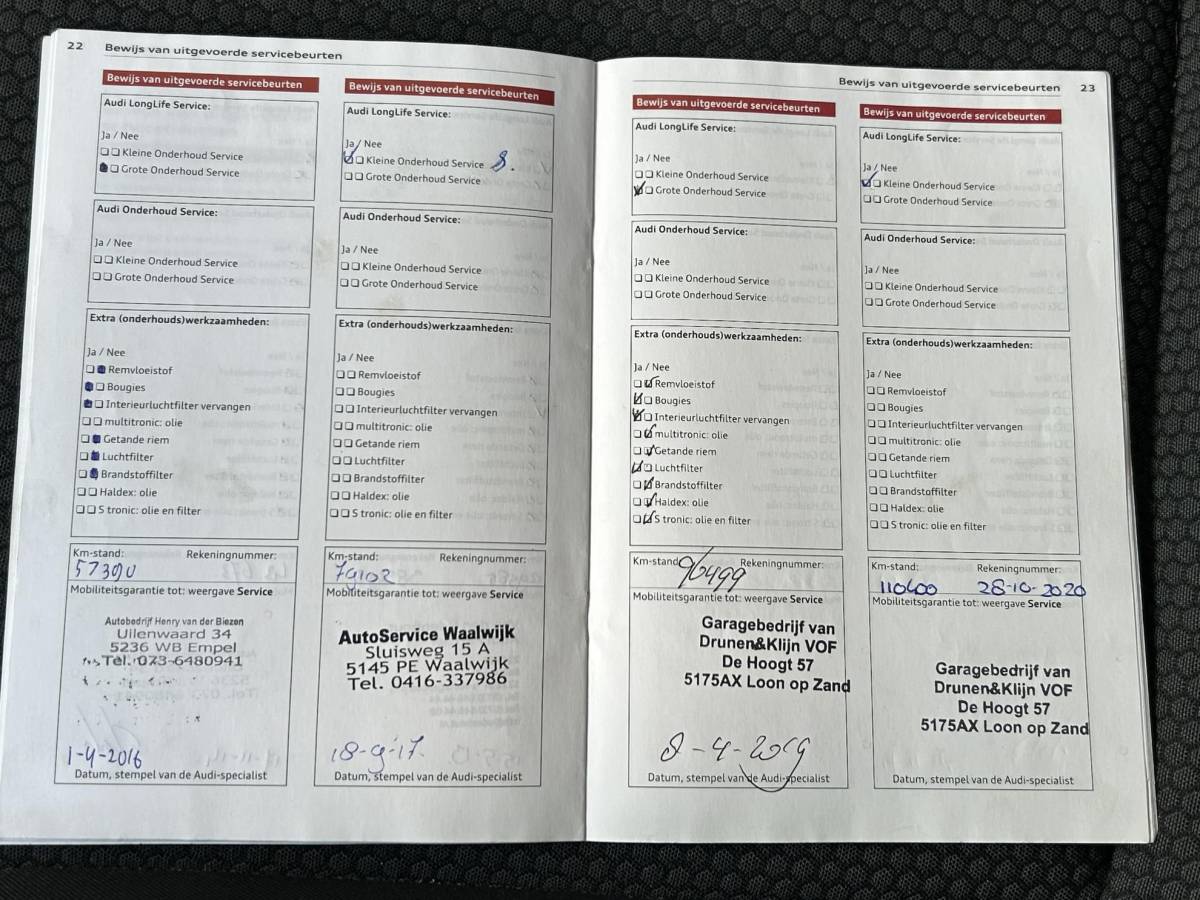 22 Bewijs van uitgevoerde servicebeurten
Bewijs van uitgevoerde servicebeurten
Audi LongLife Service:
Ja / Nee
Kleine Onderhoud Service
Grote Onderhoud Service
Audi Onderhoud Service:
Ja / Nee
Kleine Onderhoud Service
Grote Onderhoud Service
Extra (onderhouds)werkzaamheden:
Ja / Nee
Remvloeistof
Bougies
Interieurluchtfilter vervangen
multitronic: olie
Getande riem
Luchtfilter
Brandstoffilter
Haldex: olie
S tronic: olie en filter
Km-stand: Rekeningnummer:
57390
Mobiliteitsgarantie tot: weergave Service
Autobedrijf Henry van der Biezen
Uilenwaard 34
5236 WB Empel
Tel. 073-6480941
1-4-2016
Datum, stempel van de Audi-specialist
Bewijs van uitgevoerde servicebeurten
Audi LongLife Service:
Ja / Nee
Kleine Onderhoud Service
Grote Onderhoud Service
Audi Onderhoud Service:
Ja / Nee
Kleine Onderhoud Service
Grote Onderhoud Service
Extra (onderhouds)werkzaamheden:
Ja / Nee
Remvloeistof
Bougies
Interieurluchtfilter vervangen
multitronic: olie
Getande riem
Luchtfilter
Brandstoffilter
Haldex: olie
S tronic: olie en filter
Km-stand: Rekeningnummer:
79102
Mobiliteitsgarantie tot: weergave Service
AutoService Waalwijk
Sluisweg 15 A
5145 PE Waalwijk
Tel. 0416-337986
18-9-17
Datum, stempel van de Audi-specialist
Bewijs van uitgevoerde servicebeurten 23
Bewijs van uitgevoerde servicebeurten
Audi LongLife Service:
Ja / Nee
Kleine Onderhoud Service
Grote Onderhoud Service
Audi Onderhoud Service:
Ja / Nee
Kleine Onderhoud Service
Grote Onderhoud Service
Extra (onderhouds)werkzaamheden:
Ja / Nee
Remvloeistof
Bougies
Interieurluchtfilter vervangen
multitronic: olie
Getande riem
Luchtfilter
Brandstoffilter
Haldex: olie
S tronic: olie en filter
Km-stand: Rekeningnummer:
96499
Mobiliteitsgarantie tot: weergave Service
Garagebedrijf van
Drunen&Klijn VOF
De Hoogt 57
5175AX Loon op Zand
8-4-2019
Datum, stempel van de Audi-specialist
Bewijs van uitgevoerde servicebeurten
Audi LongLife Service:
Ja / Nee
Kleine Onderhoud Service
Grote Onderhoud Service
Audi Onderhoud Service:
Ja / Nee
Kleine Onderhoud Service
Grote Onderhoud Service
Extra (onderhouds)werkzaamheden:
Ja / Nee
Remvloeistof
Bougies
Interieurluchtfilter vervangen
multitronic: olie
Getande riem
Luchtfilter
Brandstoffilter
Haldex: olie
S tronic: olie en filter
Km-stand: Rekeningnummer:
110400 28-10-2020
Mobiliteitsgarantie tot: weergave Service
Garagebedrijf van
Drunen&Klijn VOF
De Hoogt 57
5175AX Loon op Zand
Datum, stempel van de Audi-specialist